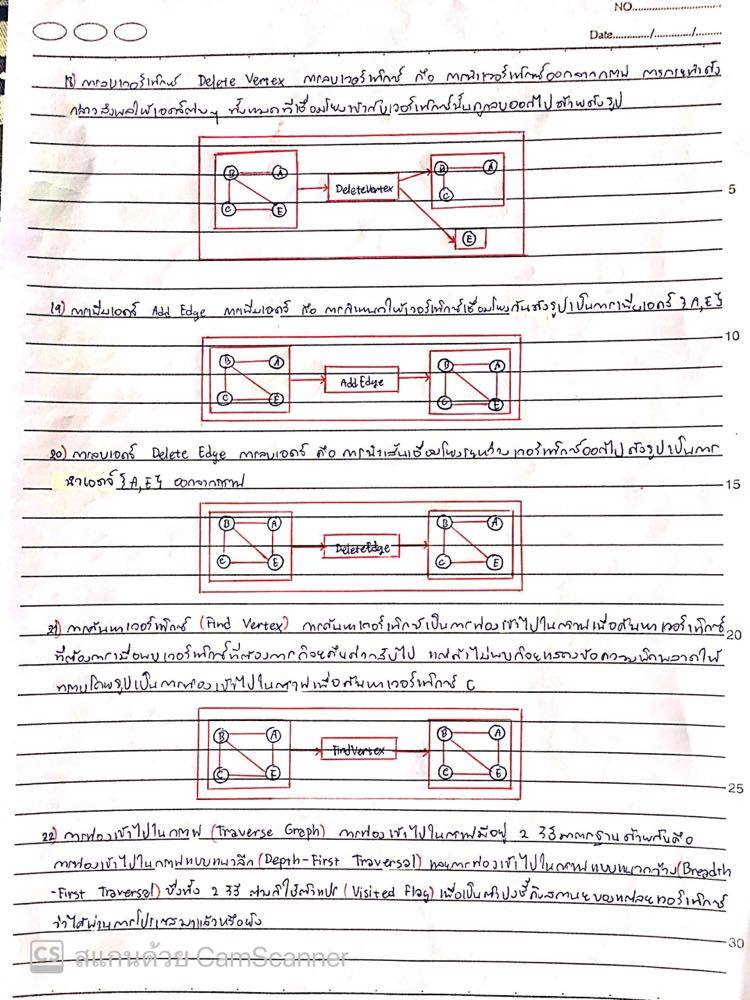 NO.
Date........../........../........
18) การลบเวอร์เท็กซ์ Delete Vertex การลบเวอร์เท็กซ์ คือ การนำเวอร์เท็กซ์ออกจากกราฟ การกระทำดัง
กล่าวส่งผลให้เอดจ์ต่างๆ ทั้งหมดที่เชื่อมโยงเข้ากับเวอร์เท็กซ์นั้นถูกลบออกไปด้วยดังรูป
B A C E
DeleteVertex
B A C
E
5
19) การเพิ่มเอดจ์ Add Edge การเพิ่มเอดจ์ คือ การกำหนดให้เวอร์เท็กซ์เชื่อมโยงกันดังรูปเป็นการเพิ่มเอดจ์ {A,E}
10
B A C E
Add Edge
B A C E
20) การลบเอดจ์ Delete Edge การลบเอดจ์ คือ การนำเส้นเชื่อมโยงระหว่างเวอร์เท็กซ์ออกไป ดังรูปเป็นการ
นำเอดจ์ {A,E} ออกจากกราฟ
15
B A C E
DeleteEdge
B A C E
21) การค้นหาเวอร์เท็กซ์ (Find Vertex) การค้นหาเวอร์เท็กซ์เป็นการท่องเข้าไปในกราฟเพื่อค้นหาเวอร์เท็กซ์
20
ที่ต้องการเมื่อพบเวอร์เท็กซ์ที่ต้องการก็จะคืนค่ากลับไป แต่ถ้าไม่พบก็จะแสดงข้อความผิดพลาดให้
ทราบโดยรูปเป็นการท่องเข้าไปในกราฟเพื่อค้นหาเวอร์เท็กซ์ C
B A C E
FindVertex
B A C E
25
22) การท่องเข้าไปในกราฟ (Traverse Graph) การท่องเข้าไปในกราฟมีอยู่ 2 วิธีมาตรฐานด้วยกันคือ
การท่องเข้าไปในกราฟแบบแนวลึก (Depth-First Traversal) และการท่องเข้าไปในกราฟแบบแนวกว้าง (Breadth
-First Traversal) ซึ่งทั้ง 2 วิธี ต่างก็ใช้ตัวแปร (Visited Flag) เพื่อเป็นตัวบ่งชี้ถึงสถานะของแต่ละเวอร์เท็กซ์
ว่าได้ผ่านการโปรเซสมาแล้วหรือยัง
30
CS สแกนด้วย CamScanner